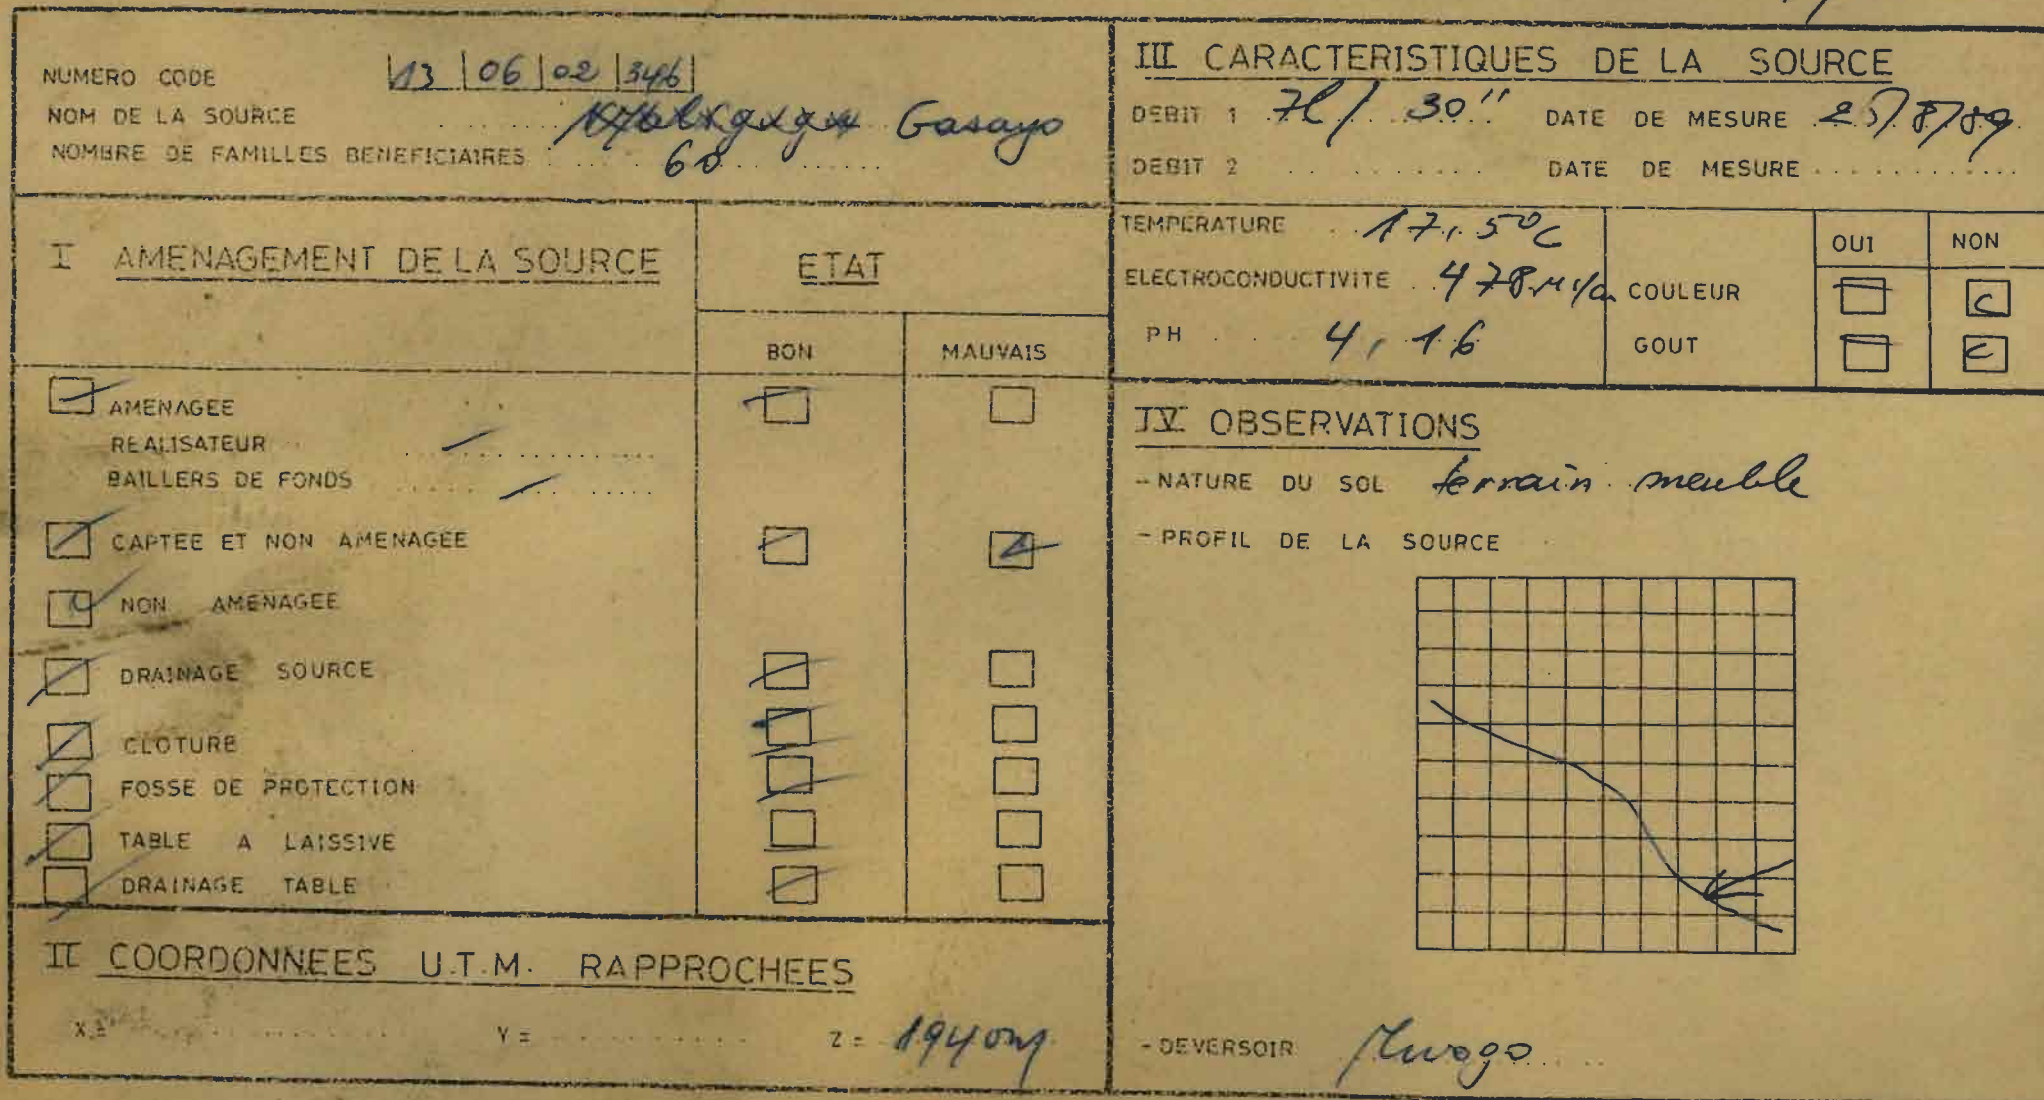 NUMERO CODE 13 | 06 | 02 | 346
NOM DE LA SOURCE Gasayo
NOMBRE DE FAMILLES BENEFICIAIRES 60
I AMENAGEMENT DE LA SOURCE
ETAT
BON
MAUVAIS
AMENAGEE
REALISATEUR
BAILLERS DE FONDS
CAPTEE ET NON AMENAGEE
NON AMENAGEE
DRAINAGE SOURCE
CLOTURE
FOSSE DE PROTECTION
TABLE A LAISSIVE
DRAINAGE TABLE
II COORDONNEES U.T.M. RAPPROCHEES
X = Y = Z = 1940m
III CARACTERISTIQUES DE LA SOURCE
DEBIT 1 7l / 30'' DATE DE MESURE 25/8/89
DEBIT 2 DATE DE MESURE
TEMPERATURE 17,5°C
ELECTROCONDUCTIVITE 478
PH 4,16
OUI NON
COULEUR
GOUT
IV OBSERVATIONS
- NATURE DU SOL terrain meuble
- PROFIL DE LA SOURCE
- DEVERSOIR